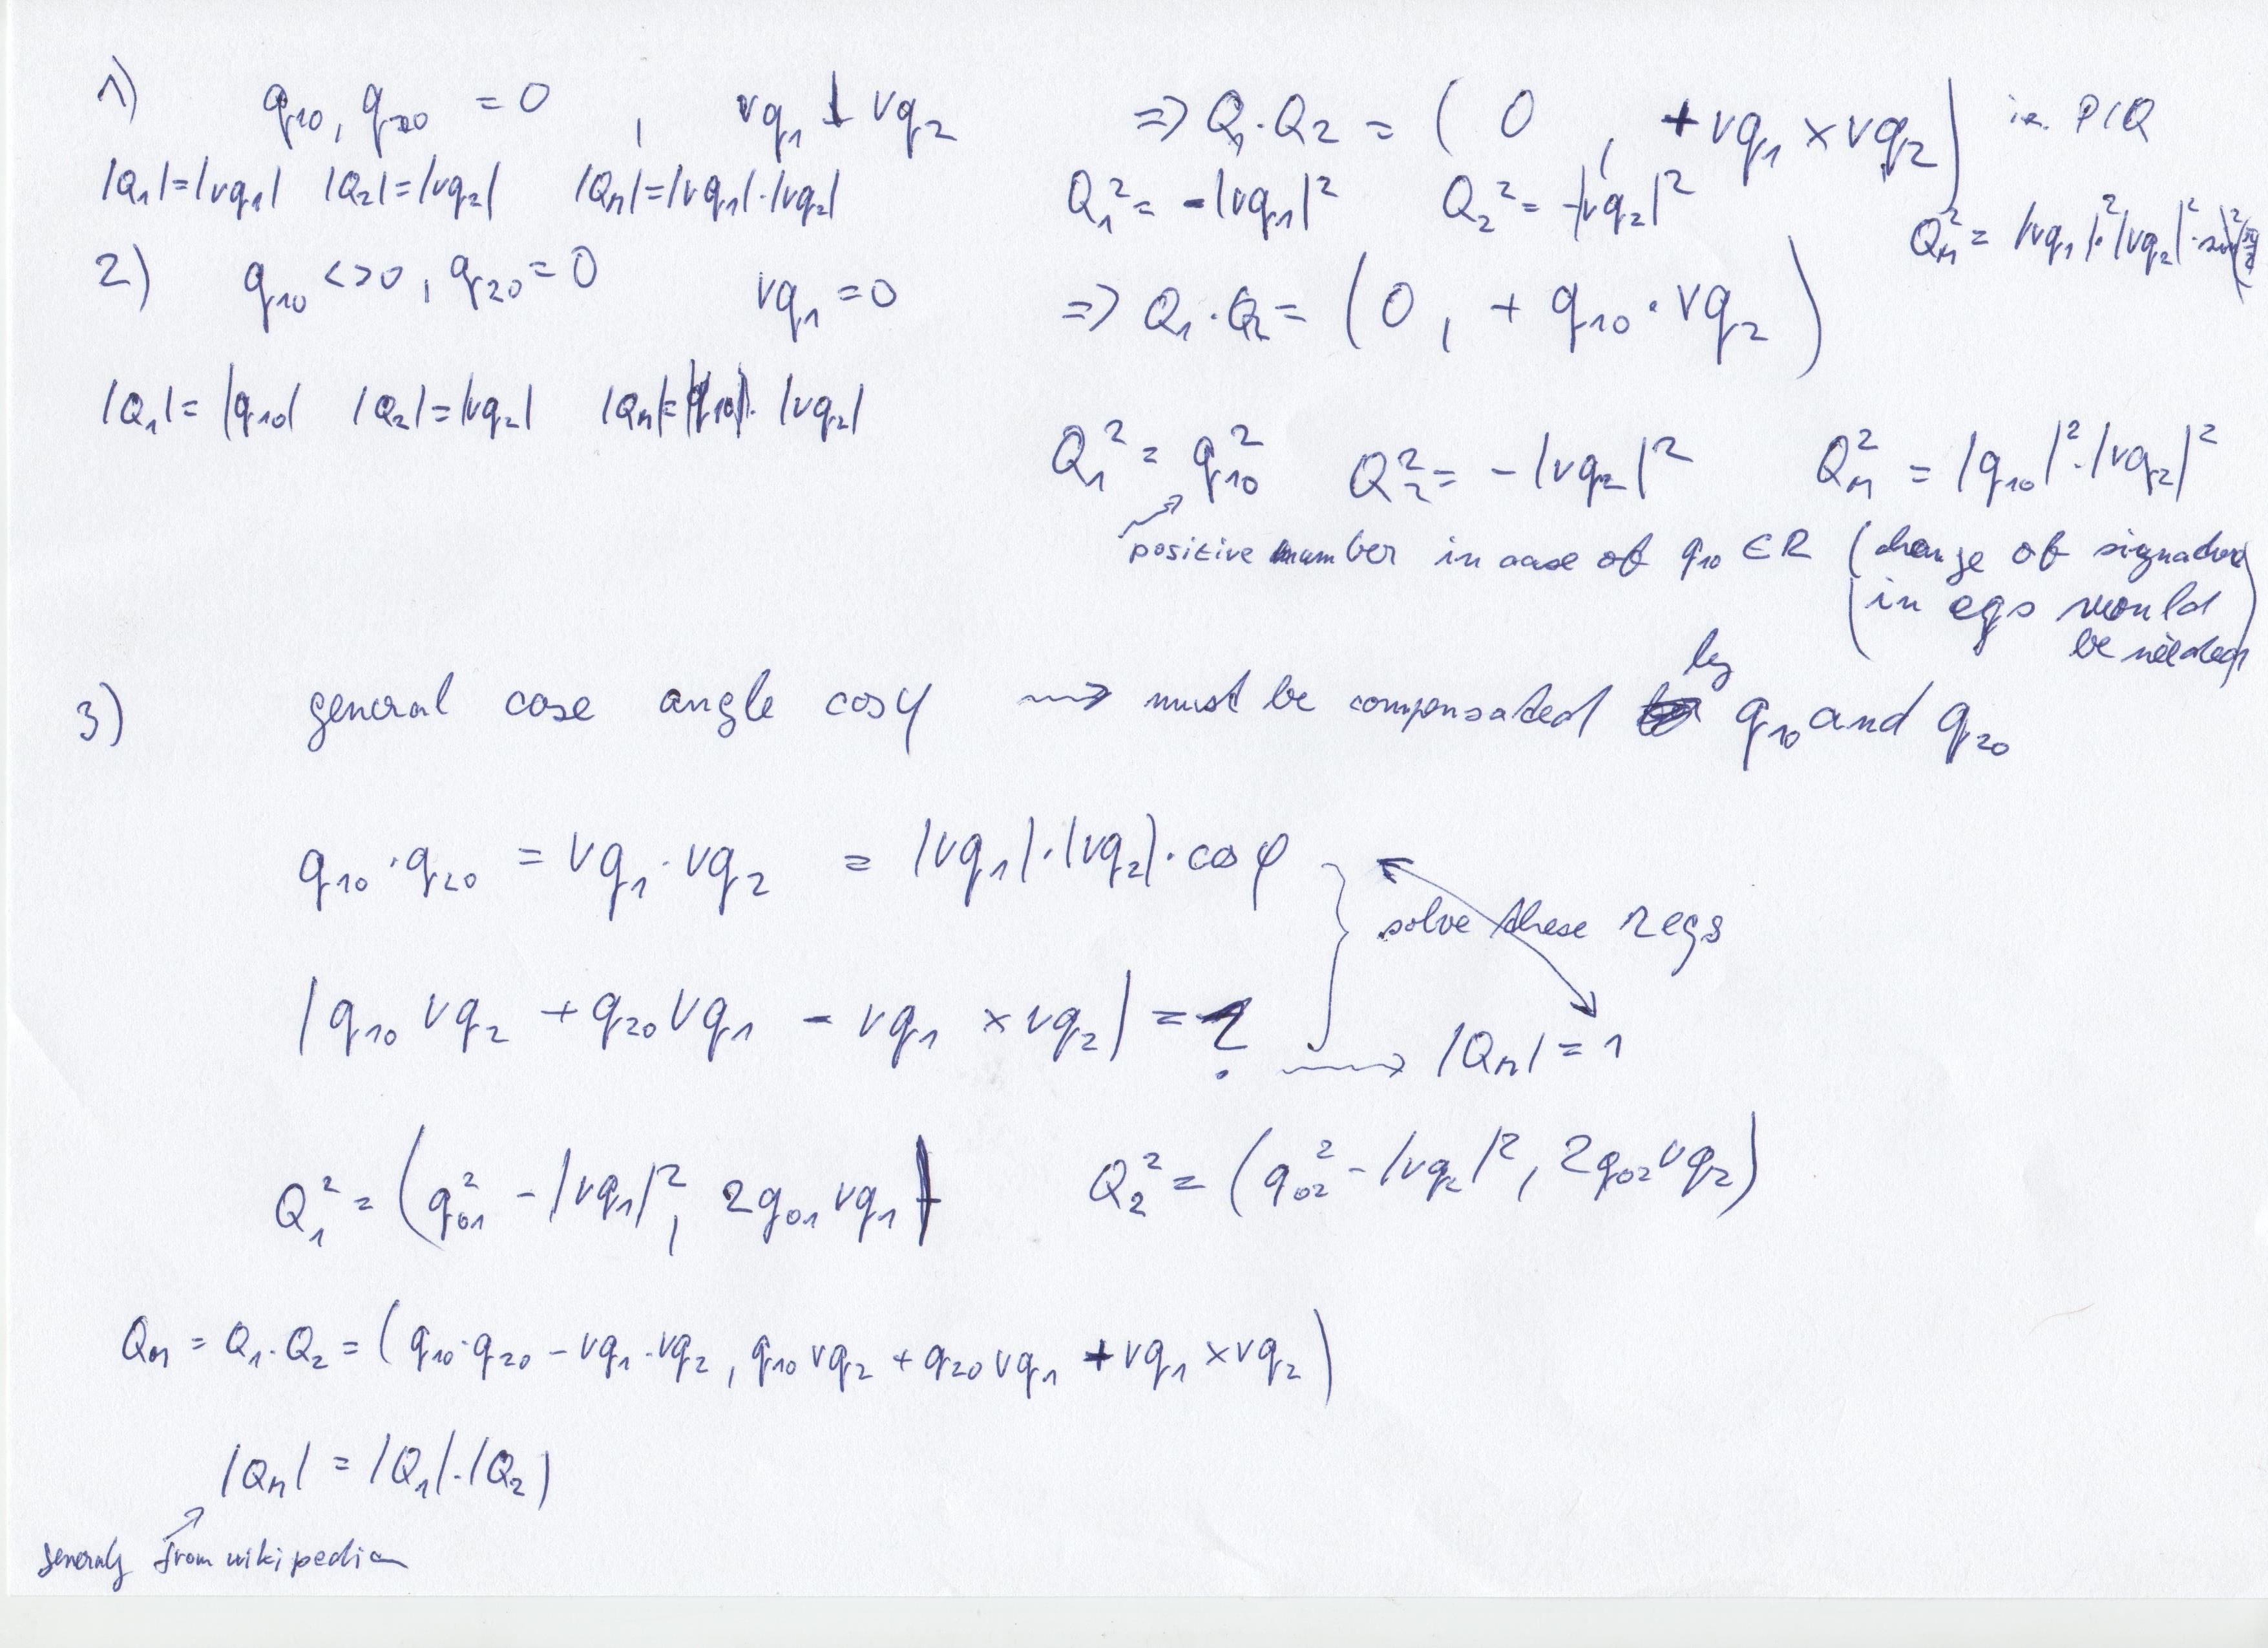 1) q₁₀, q₂₀ = 0 , vq₁ ⊥ vq₂ => Q₁·Q₂ = ( 0 , + vq₁ × vq₂ ) i.e. P/Q
|Q₁|=|vq₁| |Q₂|=|vq₂| |Qₙ|=|vq₁|·|vq₂| Q₁² = -|vq₁|² Q₂² = -|vq₂|² Qₙ² = |vq₁|²·|vq₂|²·sin²
2) q₁₀ <>0, q₂₀ = 0 vq₁ = 0 => Q₁·Q₂ = ( 0, + q₁₀·vq₂ )
|Q₁| = |q₁₀| |Q₂|=|vq₂| |Qₙ|=|q₁₀|·|vq₂|
Q₁² = q₁₀² Q₂² = -|vq₂|² Qₙ² = |q₁₀|²·|vq₂|²
positive number in case of q₁₀ ∈ R (change of signature
in eqs would
be needed)
3) general case angle cosφ ⟿ must be compensated by q₁₀ and q₂₀
q₁₀·q₂₀ = vq₁·vq₂ = |vq₁|·|vq₂|·cosφ
} solve these 2 eqs
|q₁₀ vq₂ + q₂₀ vq₁ - vq₁ × vq₂| = ? ⟿ |Qₙ| = 1
Q₁² = (q₀₁² - |vq₁|², 2q₀₁ vq₁) Q₂² = (q₀₂² - |vq₂|², 2q₀₂ vq₂)
Qₙ = Q₁·Q₂ = (q₁₀·q₂₀ - vq₁·vq₂, q₁₀ vq₂ + q₂₀ vq₁ + vq₁ × vq₂)
|Qₙ| = |Q₁|·|Q₂|
generaly from wikipedia